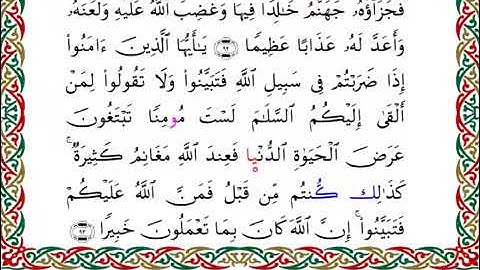 فَجَزَآؤُهُۥ جَهَنَّمُ خَٰلِدًا فِيهَا وَغَضِبَ ٱللَّهُ عَلَيْهِ وَلَعَنَهُۥ
وَأَعَدَّ لَهُۥ عَذَابًا عَظِيمًا ٩٢ يَٰٓأَيُّهَا ٱلَّذِينَ ءَامَنُوٓا۟
إِذَا ضَرَبْتُمْ فِى سَبِيلِ ٱللَّهِ فَتَبَيَّنُوا۟ وَلَا تَقُولُوا۟ لِمَنْ
أَلْقَىٰٓ إِلَيْكُمُ ٱلسَّلَٰمَ لَسْتَ مُومِنًا تَبْتَغُونَ
عَرَضَ ٱلْحَيَوٰةِ ٱلدُّنْيَا فَعِندَ ٱللَّهِ مَغَانِمُ كَثِيرَةٌ ۚ
كَذَٰلِك كُّنتُم مِّن قَبْلُ فَمَنَّ ٱللَّهُ عَلَيْكُمْ
فَتَبَيَّنُوٓا۟ ۚ إِنَّ ٱللَّهَ كَانَ بِمَا تَعْمَلُونَ خَبِيرًا ٩٣